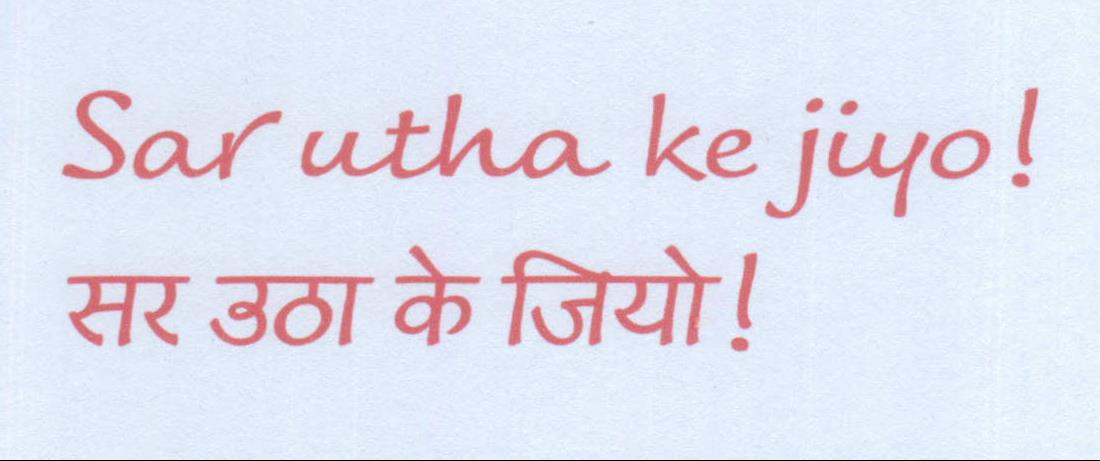 Sar utha ke jiyo!
सर उठा के जियो!